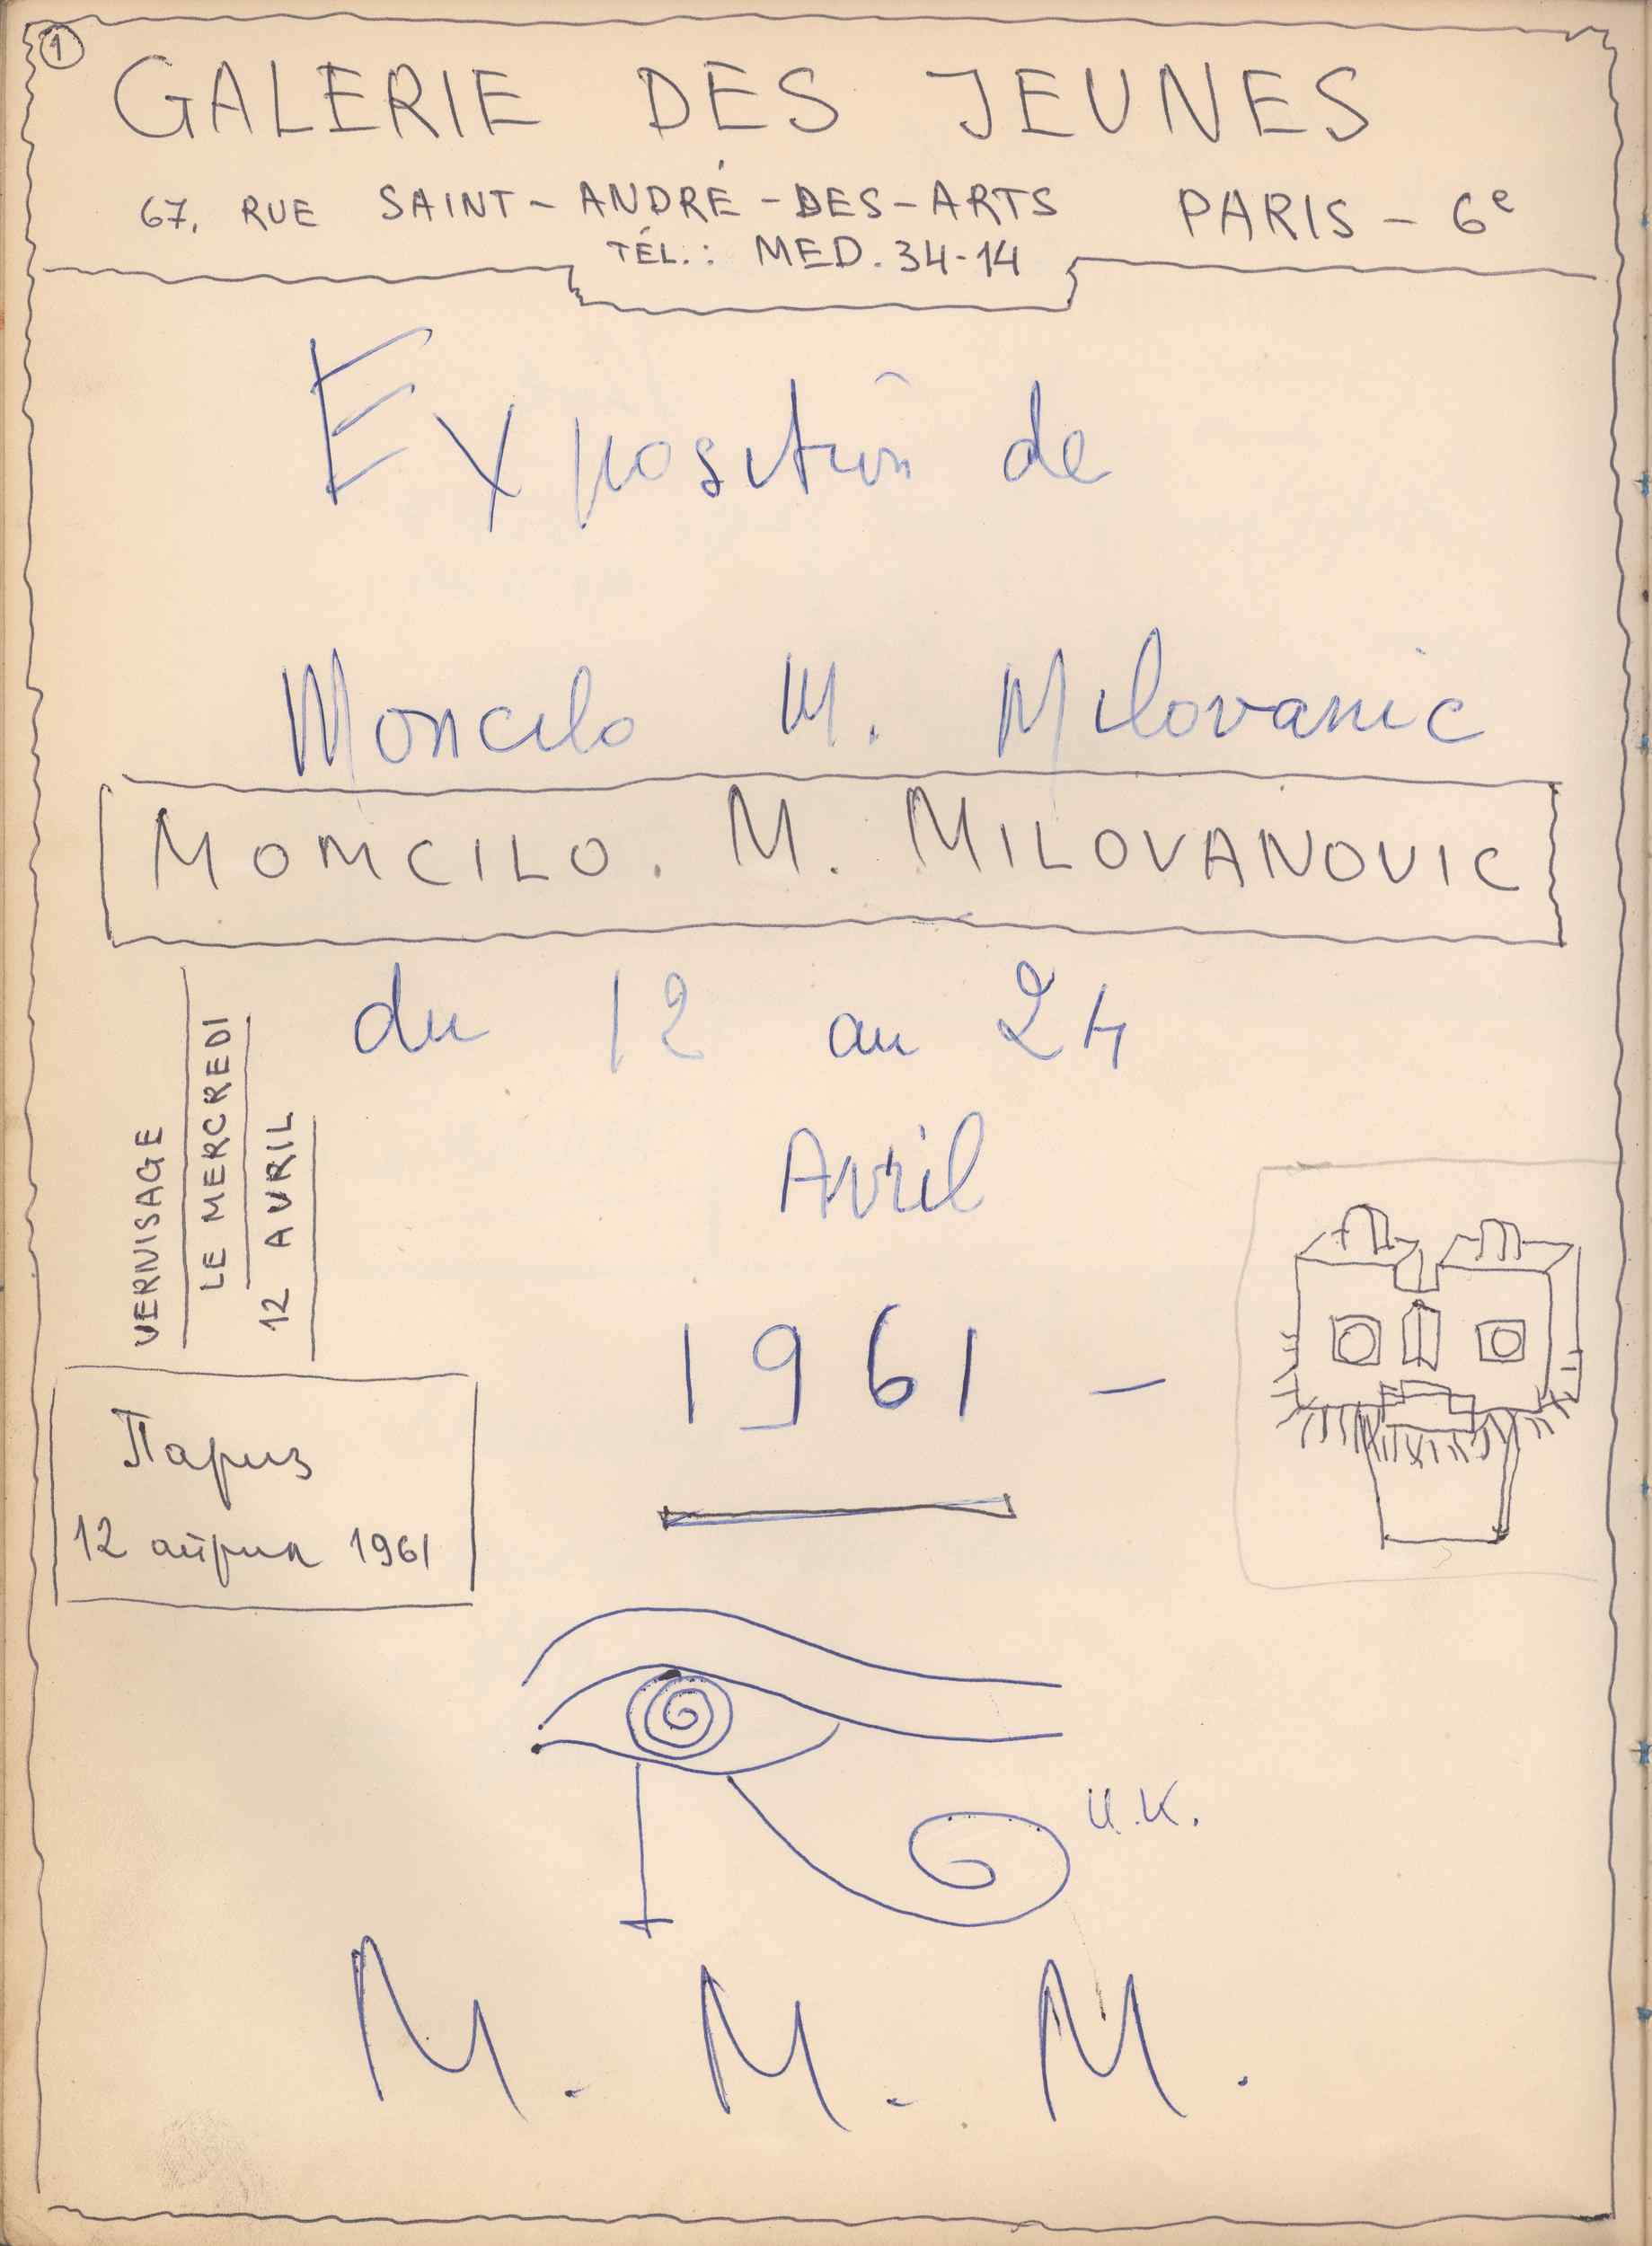 1
GALERIE DES JEUNES
67, RUE SAINT-ANDRÉ-DES-ARTS PARIS-6e
TÉL.: MED. 34-14
Exposition de
Moncilo M. Milovanic
MOMCILO. M. MILOVANOVIC
du 12 au 24
Avril
1961 –
VERNISAGE
LE MERCREDI
12 AVRIL
Париз
12 април 1961
U.K.
M. M. M.